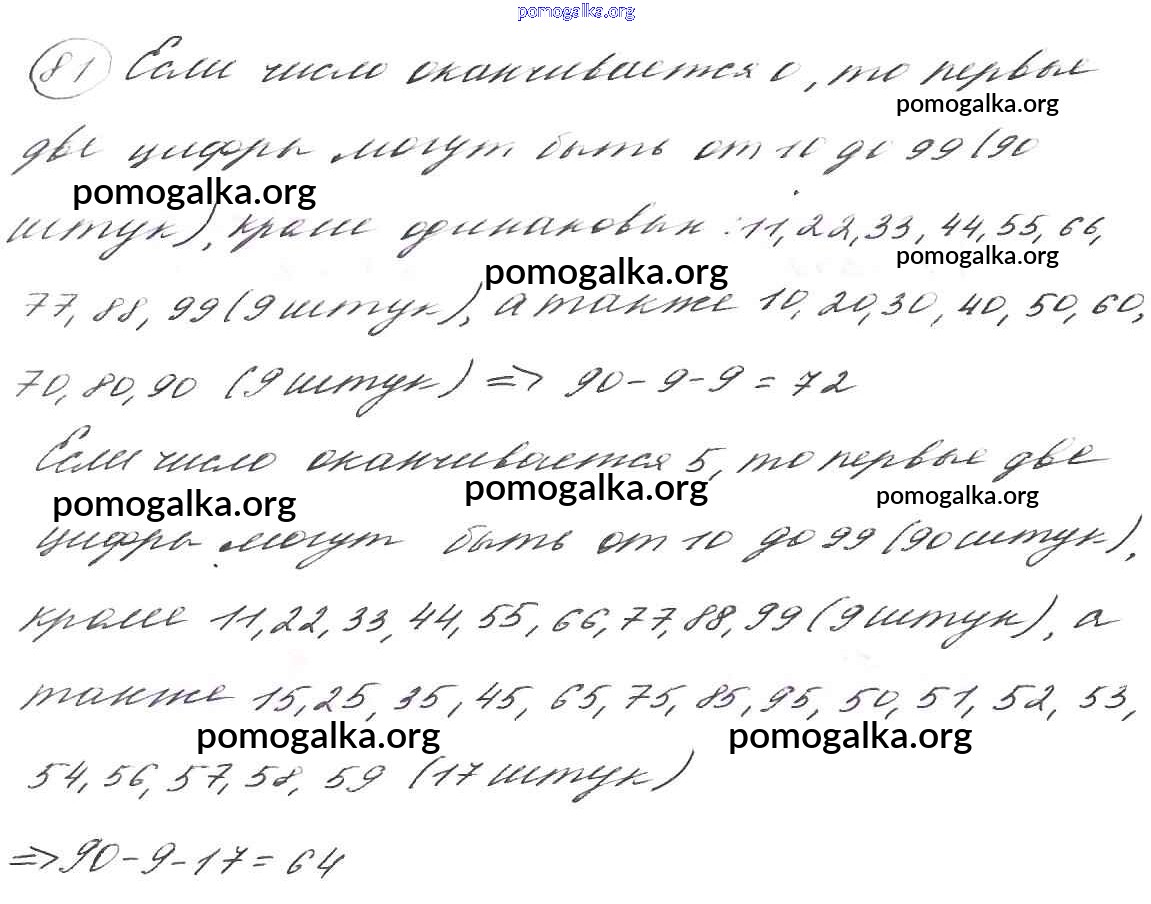 pomogalka.org
81 Если число оканчивается 0, то первые
pomogalka.org
две цифры могут быть от 10 до 99 (90
pomogalka.org
штук), кроме одинаковых: 11, 22, 33, 44, 55, 66,
pomogalka.org
pomogalka.org
77, 88, 99 (9 штук), а также 10, 20, 30, 40, 50, 60,
70, 80, 90 (9 штук) => 90 - 9 - 9 = 72
Если число оканчивается 5, то первые две
pomogalka.org pomogalka.org pomogalka.org
цифры могут быть от 10 до 99 (90 штук),
кроме 11, 22, 33, 44, 55, 66, 77, 88, 99 (9 штук), а
также 15, 25, 35, 45, 65, 75, 85, 95, 50, 51, 52, 53,
pomogalka.org pomogalka.org
54, 56, 57, 58, 59 (17 штук)
=> 90 - 9 - 17 = 64